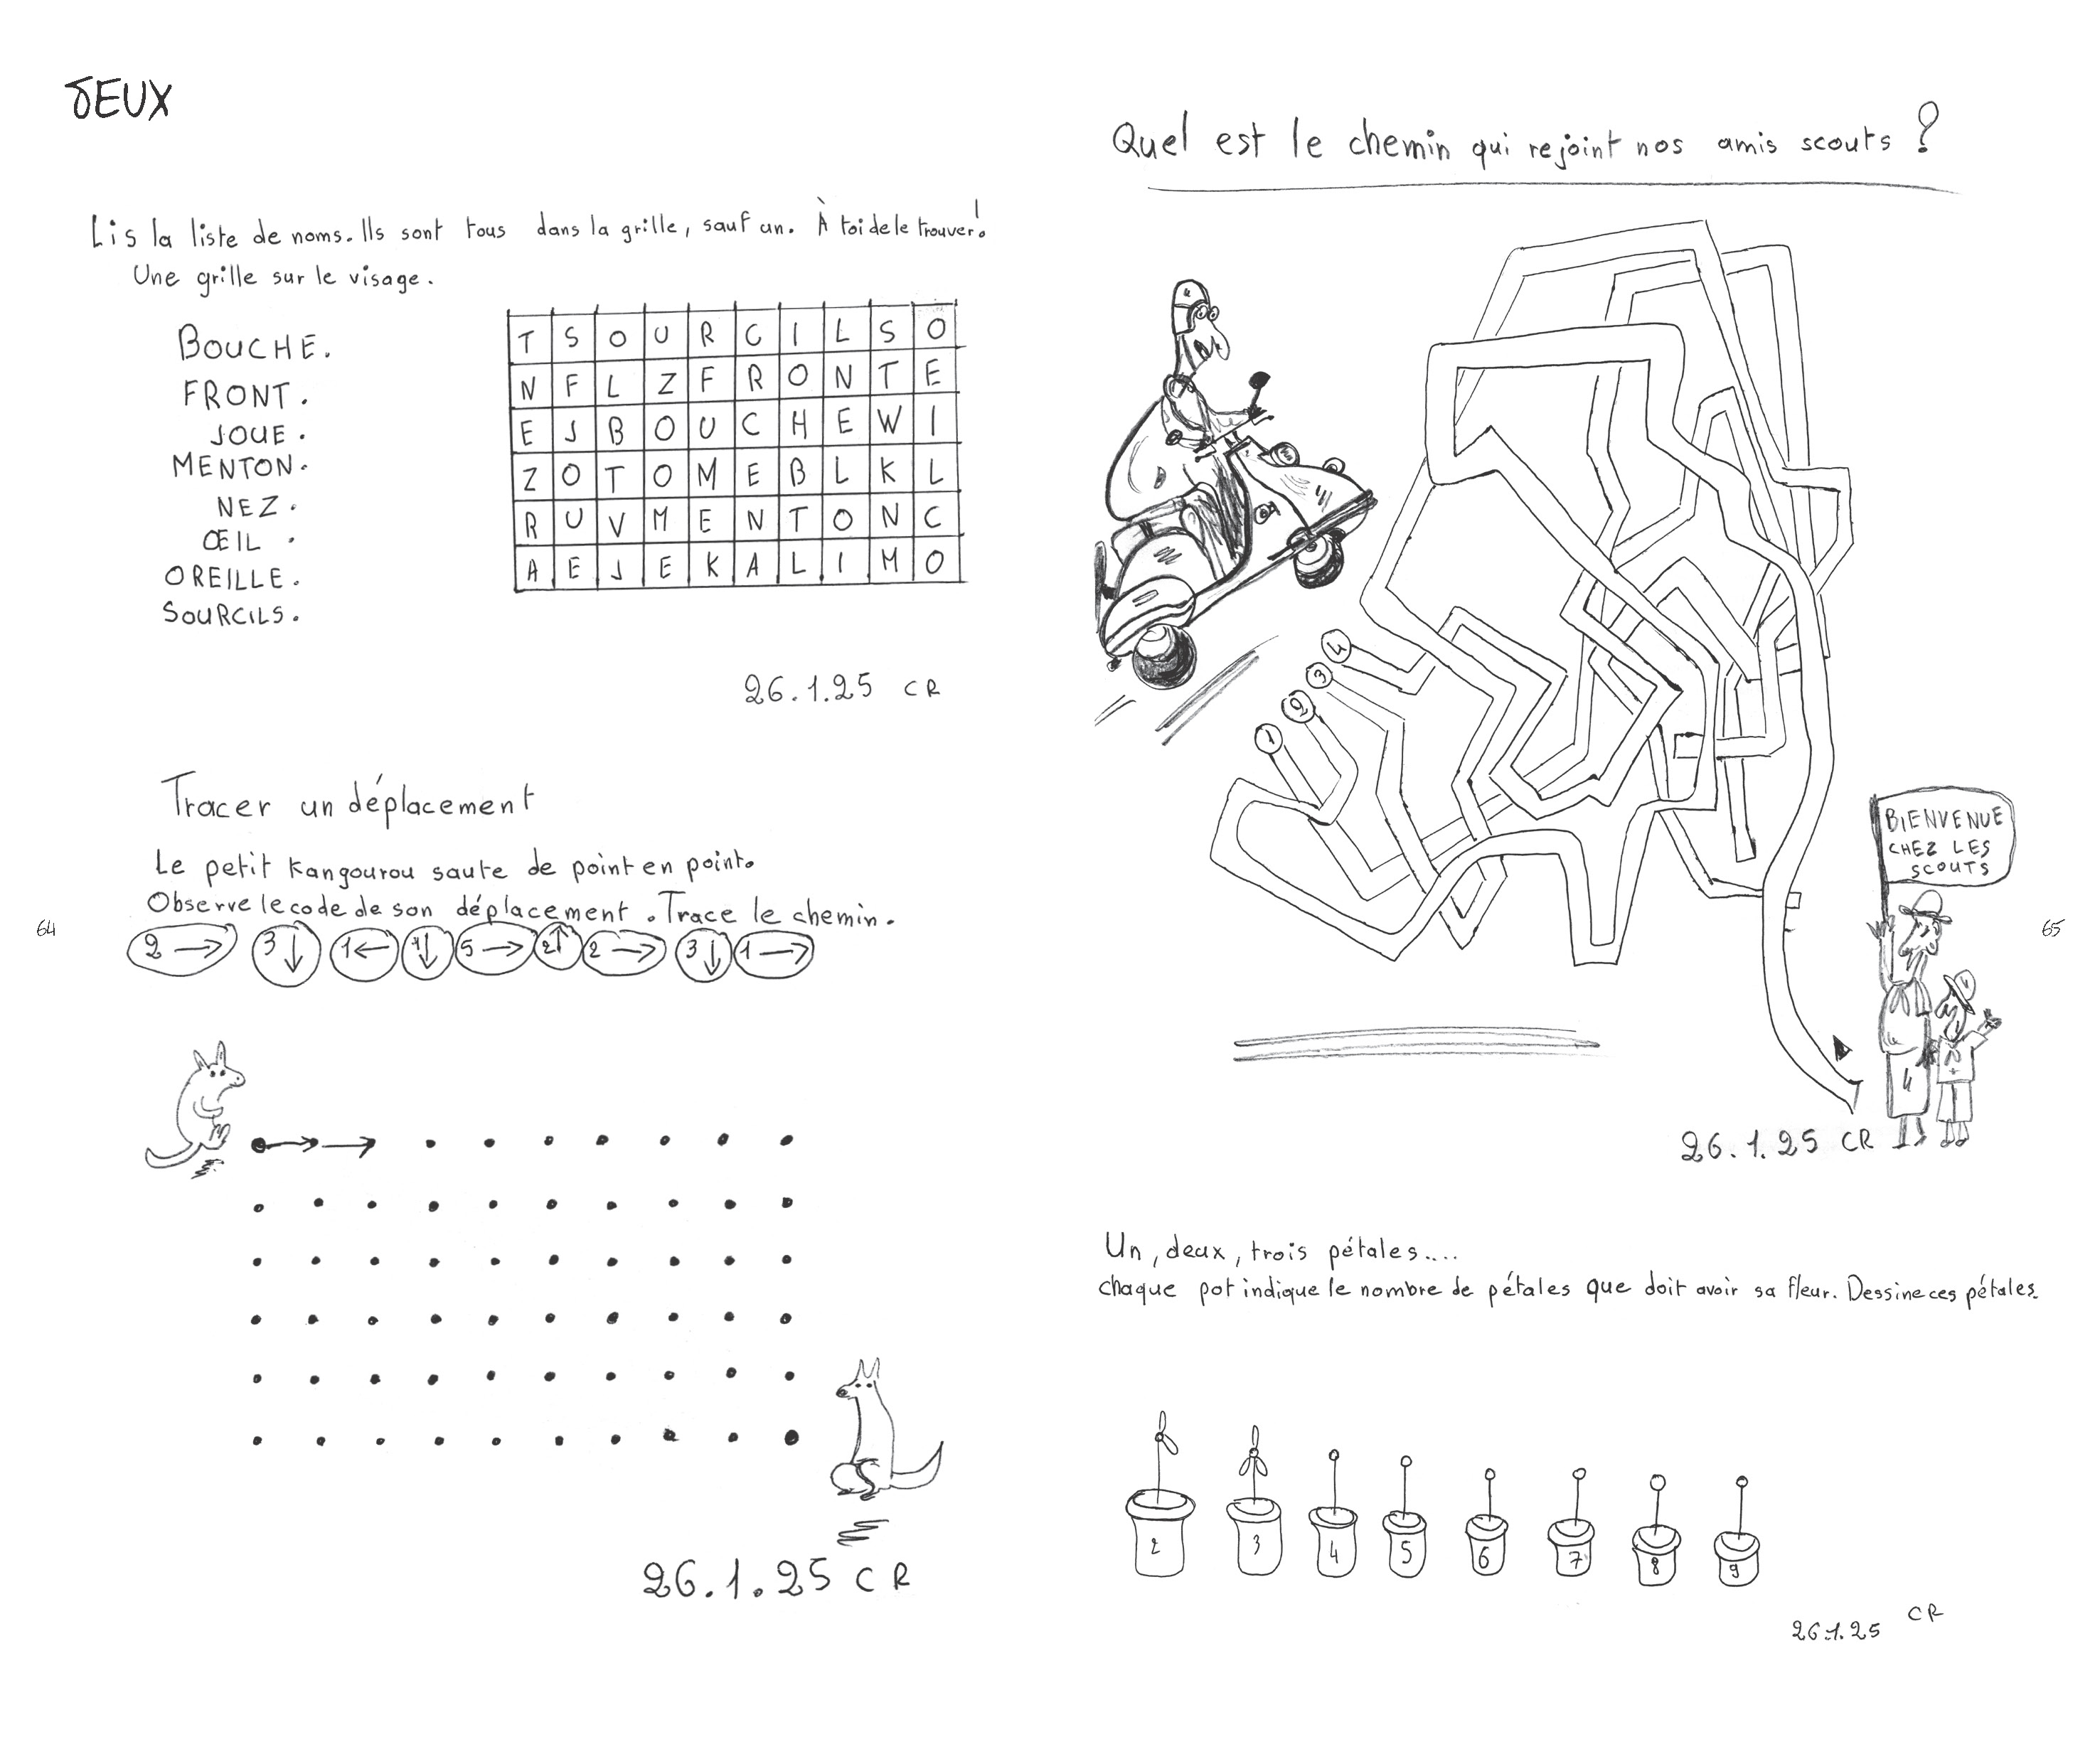 JEUX
Lis la liste de noms. Ils sont tous dans la grille, sauf un. À toi de le trouver!
Une grille sur le visage.
BOUCHE.
FRONT.
JOUE.
MENTON.
NEZ.
ŒIL.
OREILLE.
SOURCILS.
T S O U R C I L S O
N F L Z F R O N T E
E J B O U C H E W I
Z O T O M E B L K L
R U V M E N T O N C
A E J E K A L I M O
26.1.25 CR
Tracer un déplacement
Le petit kangourou saute de point en point.
Observe le code de son déplacement. Trace le chemin.
2→ 3↓ 1← 1↓ 5→ 2↑ 2→ 3↓ 1→
26.1.25 CR
64
Quel est le chemin qui rejoint nos amis scouts ?
4
3
2
1
BIENVENUE
CHEZ LES
SCOUTS
26.1.25 CR
Un, deux, trois pétales....
chaque pot indique le nombre de pétales que doit avoir sa fleur. Dessine ces pétales.
2 3 4 5 6 7 8 9
26.1.25 CR
65